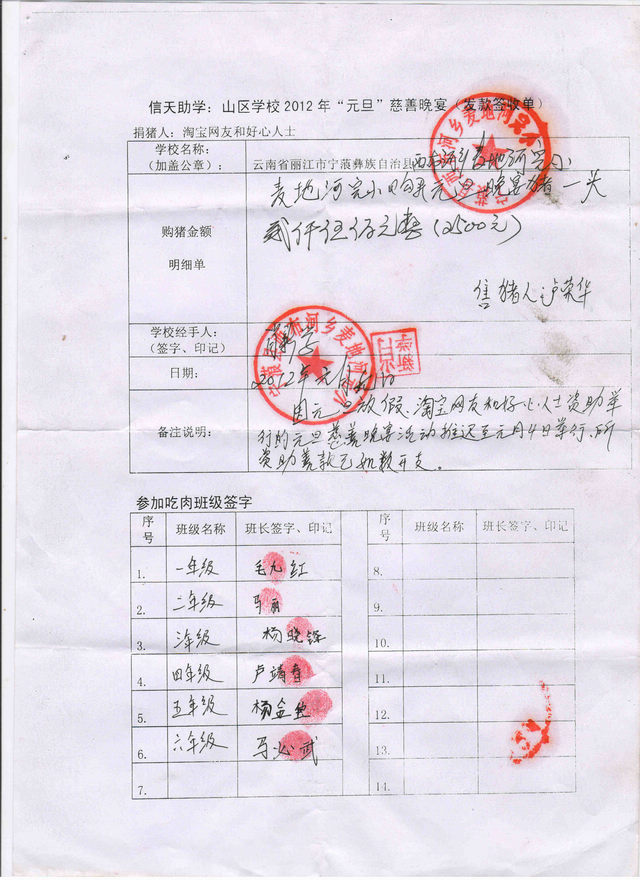 信天助学：山区学校2012年“元旦”慈善晚宴（发款签收单）
捐猪人：淘宝网友和好心人士
学校名称：
（加盖公章）：
云南省丽江市宁蒗彝族自治县西布河乡麦地河完小
麦地河完小购买元旦晚宴猪一头
购猪金额
明细单
贰仟伍佰元整（2500元）
售猪人：卢荣华
学校经手人：
（签字、印记）
日期：
2012年元月
备注说明：
因元旦放假、淘宝网友和好心人士资助举
行的元旦慈善晚宴活动推迟至元月4日举行、所
资助善款已如数开支。
参加吃肉班级签字
序号 班级名称 班长签字、印记 序号 班级名称 班长签字、印记
1. 一年级 毛九红 8.
2. 二年级 马丽 9.
3. 三年级 杨晓 10.
4. 四年级 卢靖春 11.
5. 五年级 杨金宝 12.
6. 六年级 马必武 13.
7. 14.